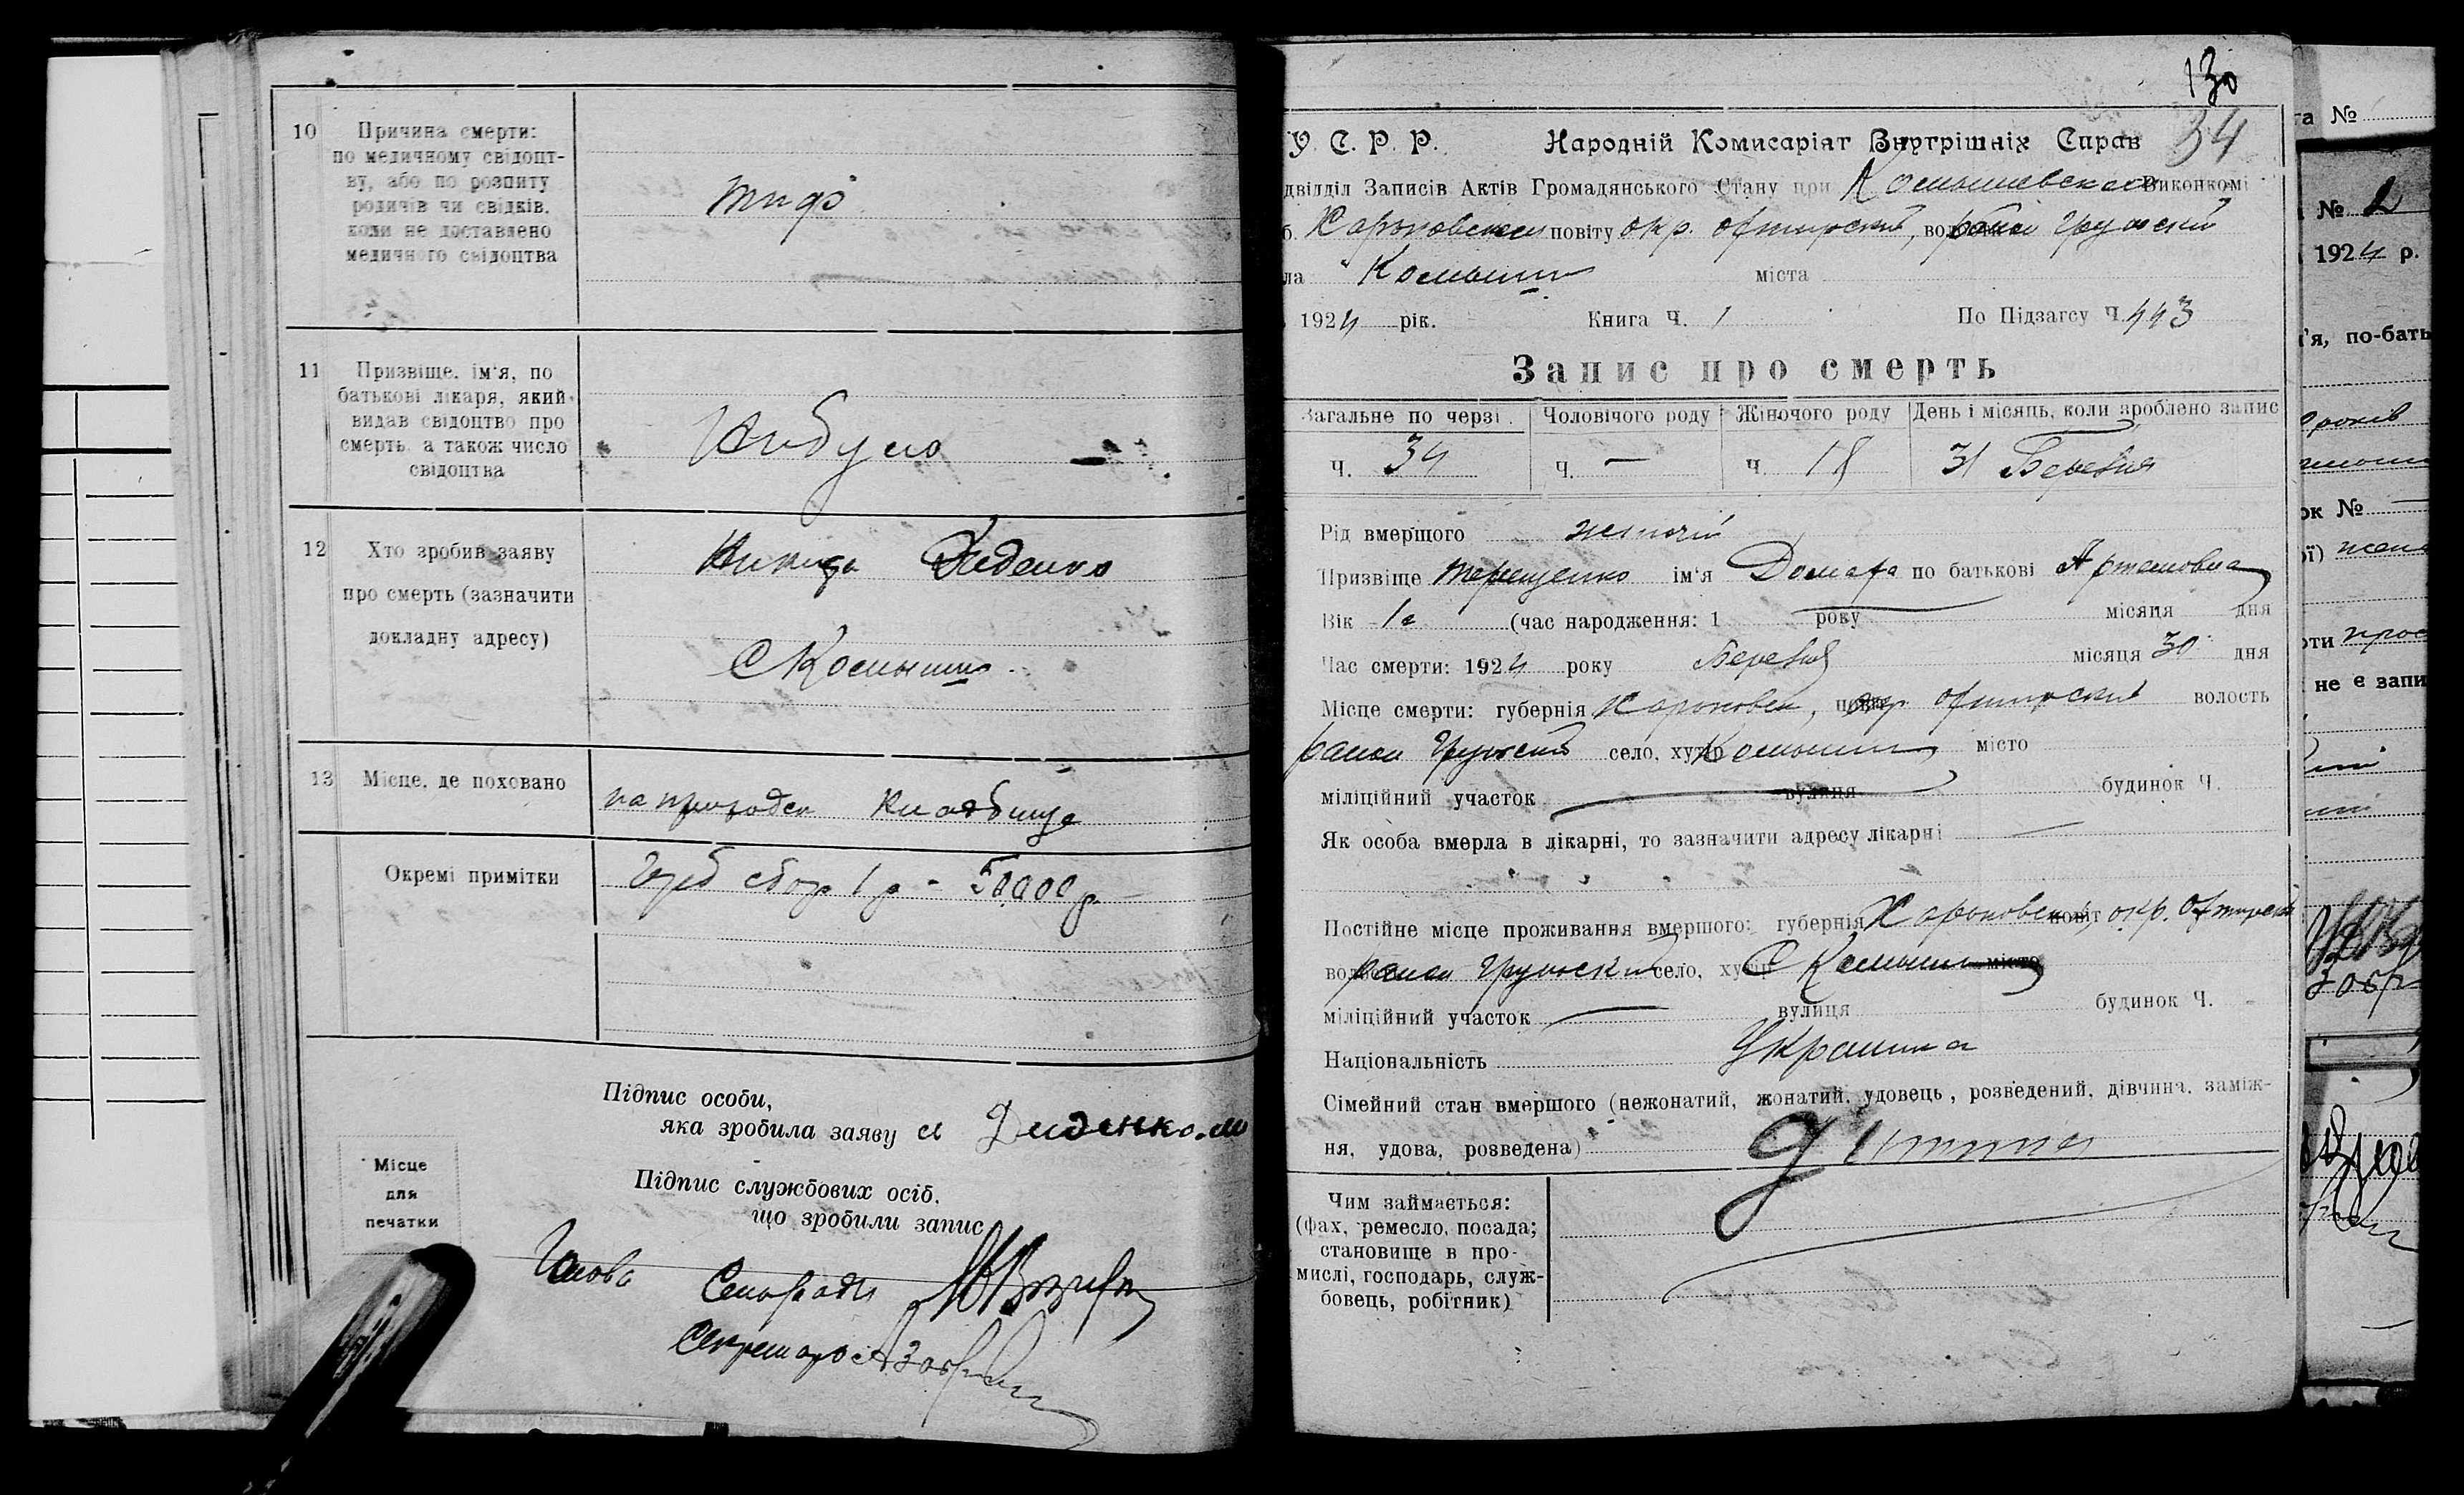 10 Причина смерти:
по медичному свідоцт-
ву, або по розпиту
родичів чи свідків.
коли не доставлено
медичного свідоцтва
тиф
11 Призвіще, ім'я, по
батькові лікаря, який
видав свідоцтво про
смерть, а також число
свідоцтва
Небуло
12 Хто зробив заяву
про смерть (зазначити
докладну адресу)
Диденко
С Комыши
13 Місце, де поховано
на кладбище
Окремі примітки
Герб сбор 1 р - 50000 р.
Підпис особи,
яка зробила заяву Диденко
Підпис службових осіб,
що зробили запис
Місце
для
печатки
Голова Сельради
Секретарь
130
У. С. Р. Р. Народній Комисаріят Внутрішніх Справ 34
двідділ Записів Актів Громадянського Стану при Комышевском Виконкомі
б. Харьковской повіту окр. Ахтырский, район Грунский
ла Комыши міста
1924 рік. Книга Ч. 1 По Підзагсу Ч. 443
Запис про смерть
Загальне по черзі Чоловічого роду Жіночого роду День і місяць, коли зроблено запис
Ч. 34 Ч. — Ч. 18 31 Березня
Рід вмерщого жіночій
Призвіще Терещенко ім'я Домаха по батькові Артемовна
Вік 1 г (час народження: 1 року місяця дня
Час смерти: 1924 року Березня місяця 30 дня
Місце смерти: губернія Харьковск, окр. Ахтырский волость
район Грунский село, хутір Комыши місто
міліційний участок вулиця будинок Ч.
Як особа вмерла в лікарні, то зазначити адресу лікарні —
Постійне місце проживання вмершого: губернія Харьковск, повіт окр. Ахтырский
район Грунский село, хутір С Комыши місто
міліційний участок — вулиця будинок Ч.
Національність Украинка
Сімейний стан вмершого (нежонатий, жонатий, удовець, розведений, дівчина, заміж-
ня, удова, розведена) Дитина
Чим займається:
(фах, ремесло, посада;
становище в про-
мислі, господарь, служ-
бовець, робітник)
та №
№ 2
1924 р.
'я, по-бать
років
ок №
ої) жен
рти
не є запи